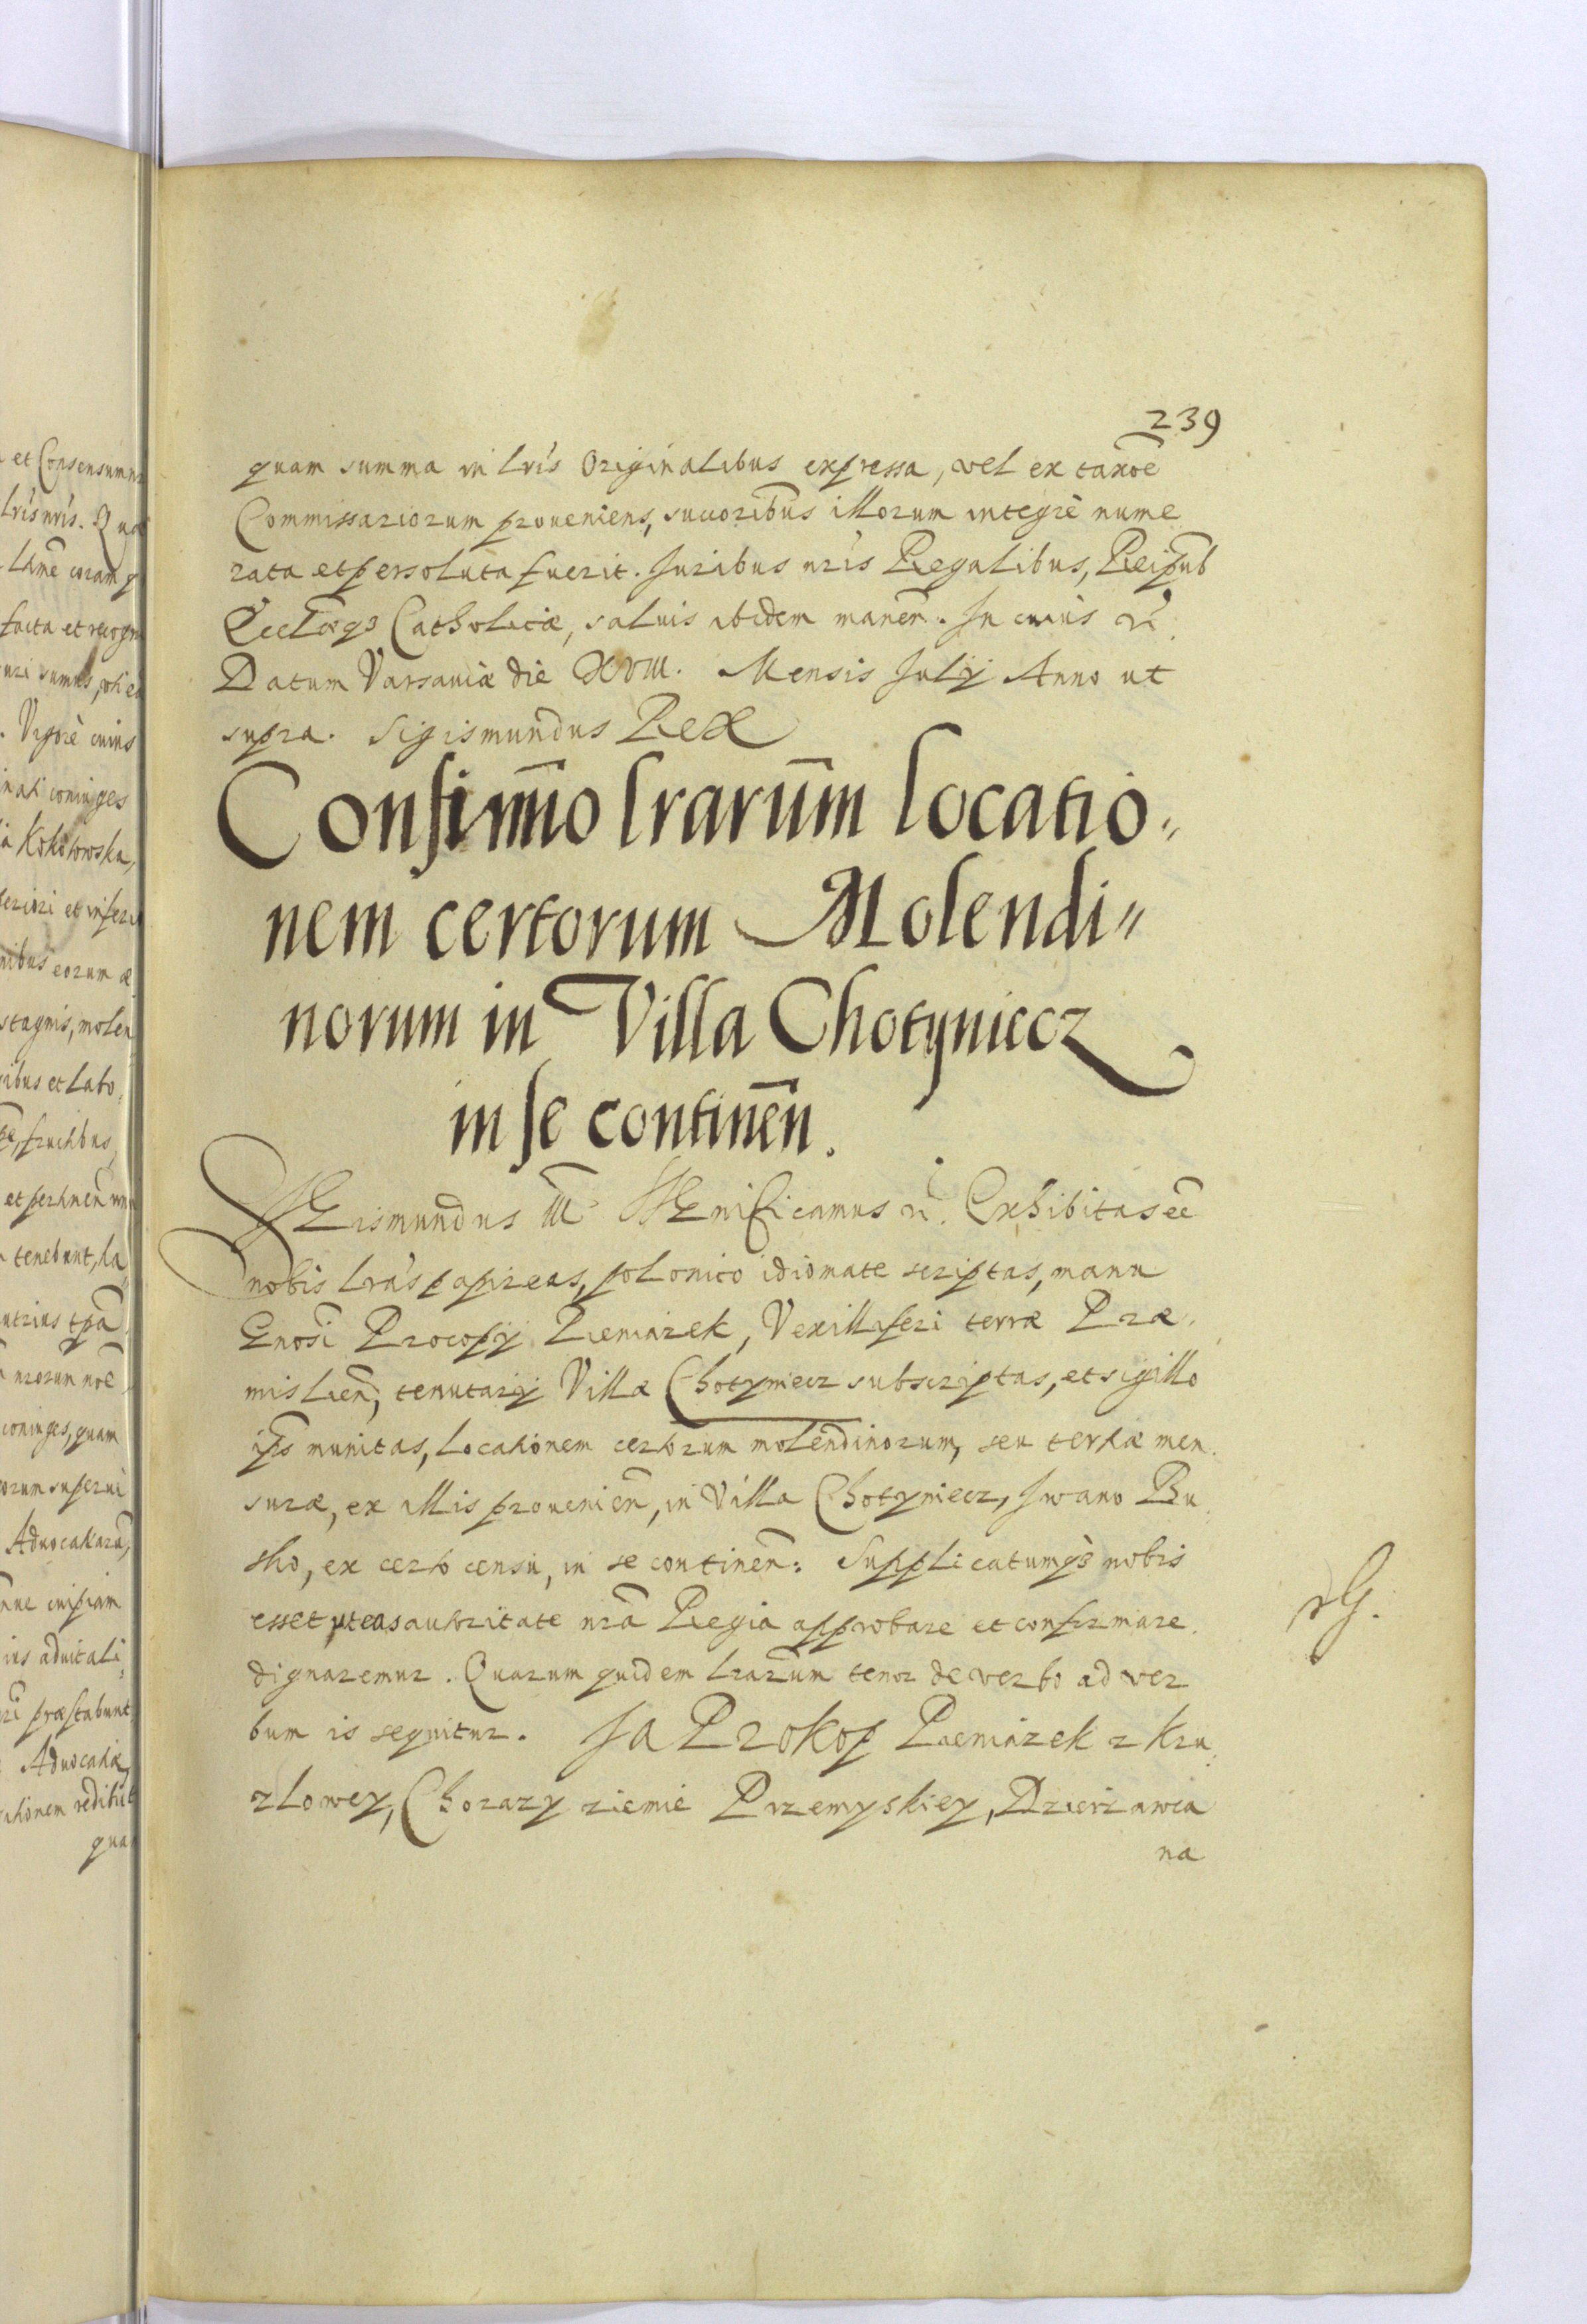 239
quam summa in lrīs Originalibus expressa, vel ex taxōe
Commissariorum proueniens, succoribūs illorum integrè nume
rata et persoluta fuerit. Juribus nrīs Regalibus, Reipūb
Eccl̄æqȝ Catholicæ, saluis ibidem manēn. In cuius rī.
Datum Varsauiæ die XVIII. Mensis Julij Anno ut
supra. Sigismundus Rex
Confirm̄o lrarūm locatio„
nem certorum Molendi„
norum in Villa Chotyniecz
in se continēn.
SGismundus III Significamus rī. Exhibitas eē
nobis lrās papireas, polonico idiomate scriptas, manu
Gnosī Procopij Pieniązek, Vexilliferi terræ Præ„
mislien̄, tenutarij Villæ Chotyniecz subscriptas, et sigillo
ip̄s munitas, locationem certorum molendinorum, seu tertiæ men„
suræ, ex illis prouenien̄, in Villa Chotyniecz, Iwano Bu„
sko, ex certo censu, in se continēn: Supplicatumqȝ nobis
esset ut eas autoritate nrā Regia approbare et confirmare
dignaremur. Quarum quidem lrarūm tenor de verbo ad ver
bum is sequitur. Ja Prokop Pieniązek z Kru„
zlowey, Chorązy ziemie Przemyskiey, Dzierzawca
na
et Consensum nr
lrīs nrīs. Qua
coram
facta et recogn
uri sumus,
Vigore cuius
coniuges
Kokotowska,
eriori et inferi
nibus eorum
stagnis, molen
ibus et labo„
fructibus
tenebunt,
nrorum nōe
coniuges, quam
orum superui
Aduocatiam
cuipiam
ius aduitali„
præstabunt
Aduocatiæ
reditus
qua